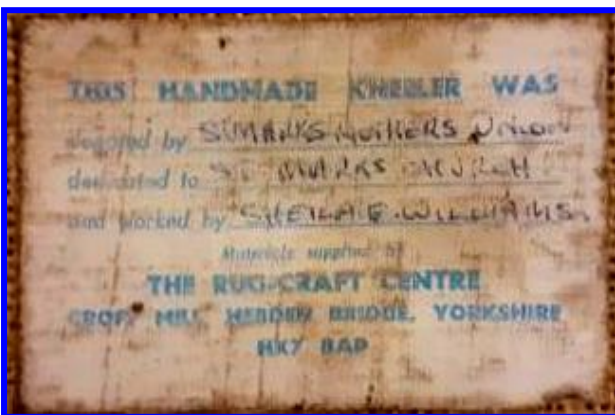 THIS HANDMADE KNEELER WAS
donated by ST MARKS MOTHERS UNION
dedicated to ST MARKS CHURCH
and worked by SHEILA E. WILLIAMS.
Materials supplied by
THE RUG-CRAFT CENTRE
CROFT MILL, HEBDEN BRIDGE, YORKSHIRE
HX7 8AP